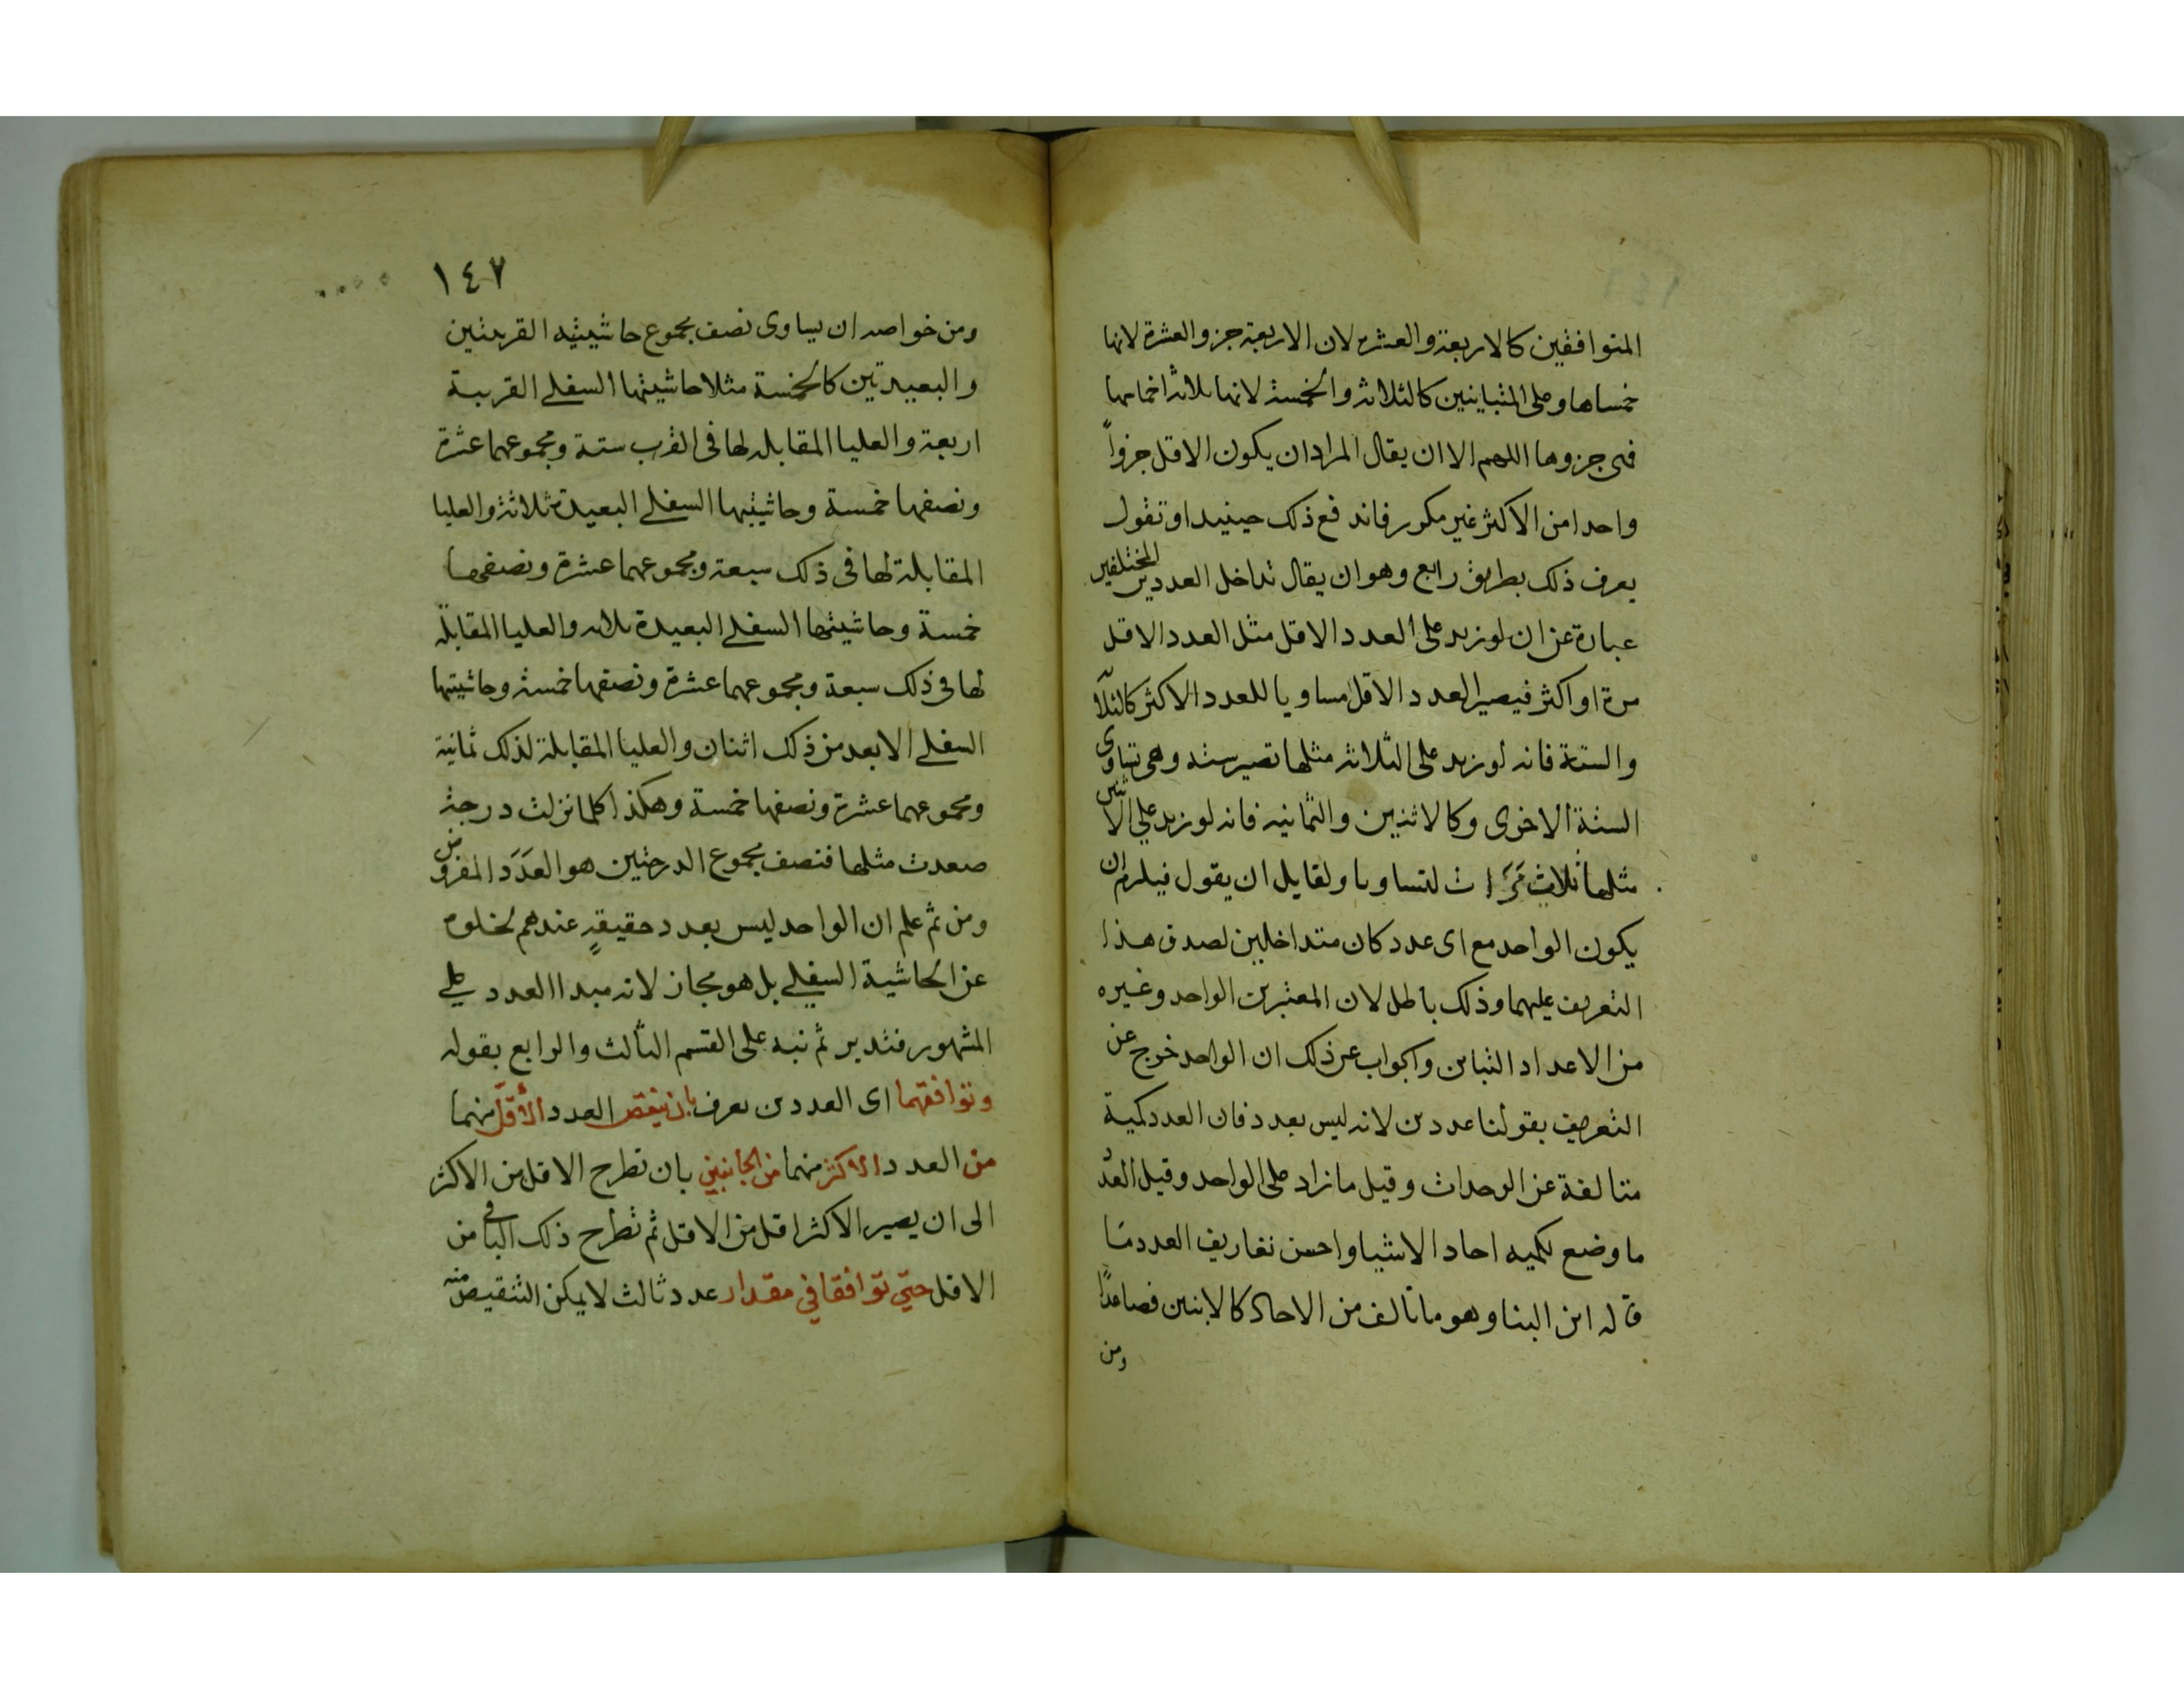 المتوافقين كالاربعة والعشرة لان الاربعة جزو العشرة لانها
خمساها وعلى المتباينين كالثلاثة والخمسة لانها ثلاثة اخماسها
فهى جزوها اللهم الا ان يقال المراد ان يكون الاقل جزواً
واحدا من الاكثر غير مكرر فاندفع ذلك حينيذ او تقول
يعرف ذلك بطريق رابع وهو ان يقال تداخل العددين المختلفين
عبارة عن ان لو زيد على العدد الاقل مثل العدد الاقل
مرة او اكثر فيصير العدد الاقل مساويا للعدد الاكثر كالثلاثة
والستة فانه لو زيد على الثلاثة مثلها تصير ستة وهى تساوى
الستة الاخرى وكالاثنين والثمانية فانه لو زيد على الاثنين
مثلها ثلاث مَرَّات لتساويا ولقايل ان يقول فيلزم ان
يكون الواحد مع اى عدد كان متداخلين لصدق هذا
التعريف عليهما وذلك باطل لان المعتبر بين الواحد وغيره
من الاعداد التباين والجواب عن ذلك ان الواحد خرج عن
التعريف بقولنا عددين لانه ليس بعدد فان العدد كمية
متالفة عن الوحدات وقيل ما زاد على الواحد وقيل العدد
ما وضع لكميه احاد الاشيا واحسن تعاريف العدد ما
قاله ابن البنا وهو ما تالف من الاحاد كالاثنين فصاعدًا
ومن
١٤٧
ومن خواصه ان يساوى نصف مجموع حاشيتيه القريبتين
والبعيدتين كالخمسة مثلا حاشيتها السفلى القريبة
اربعة والعليا المقابله لها فى القرب ستة ومجموعهما عشرة
ونصفها خمسة وحاشيتها السفلى البعيدة ثلاثة والعليا
المقابلة لها فى ذلك سبعة ومجموعهما عشرة ونصفها
خمسة وحاشيتها السفلى البعيدة ثلاثه والعليا المقابلة
لها فى ذلك سبعة ومجموعهما عشرة ونصفها خمسة وحاشيتها
السفلى الابعد من ذلك اثنان والعليا المقابلة لذلك ثمانية
ومجموعهما عشرة ونصفها خمسة وهكذا كلما نزلت درجة
صعدت مثلها فنصف مجموع الدرجتين هو العَدَدَ المفروض
ومن ثم علم ان الواحد ليس بعدد حقيقةٍ عندهم لخلوه
عن الحاشية السفلى بل هو مجاز لانه مبدا العدد على
المشهور فتدبر ثم نبه على القسم الثالث والرابع بقوله
وتوافقهما اى العددين يعرف بان ينقص العدد الأقلّ منهما
من العدد الاكثر منهما من الجانبين بان تطرح الاقل من الاكثر
الى ان يصير الاكثر اقل من الاقل ثم تطرح ذلك الباقى من
الاقل حتي توافقا في مقدار عدد ثالث لا يمكن التنقيص منه